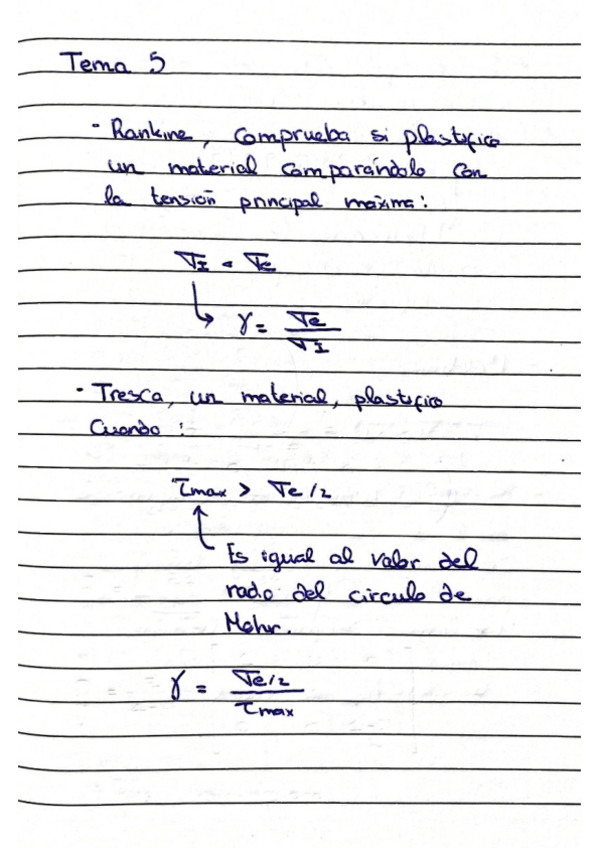 Tema 5
- Rankine, comprueba si plastifica
un material comparándolo con
la tensión principal máxima:
σI < σe
↳ γ = σe / σI
- Tresca, un material, plastifica
Cuando :
τmax > σe/2
↑ Es igual al valor del
radio del circulo de
Mohr.
γ = σe/2 / τmax